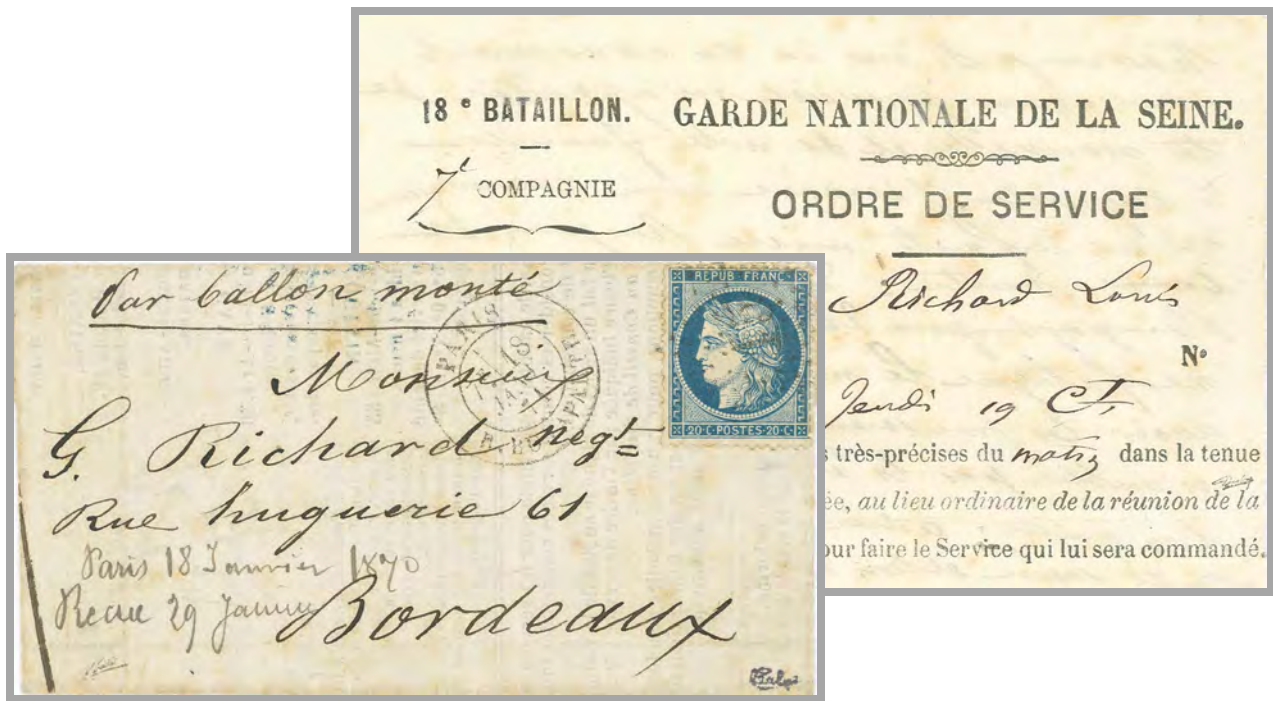 18e BATAILLON.
7e COMPAGNIE
GARDE NATIONALE DE LA SEINE.
ORDRE DE SERVICE
Richard Louis
No
Jeudi 19 Ct.
s très-précises du matin dans la tenue
ée, au lieu ordinaire de la réunion de la
our faire le Service qui lui sera commandé.
Par ballon monté
PARIS
18
REPUB·FRANC·
20·C·POSTES·20·C·
Monsieur
G. Richard negt
Rue huguerie 61
Paris 18 Janvier 1870
Recue 29 Janvier
Bordeaux